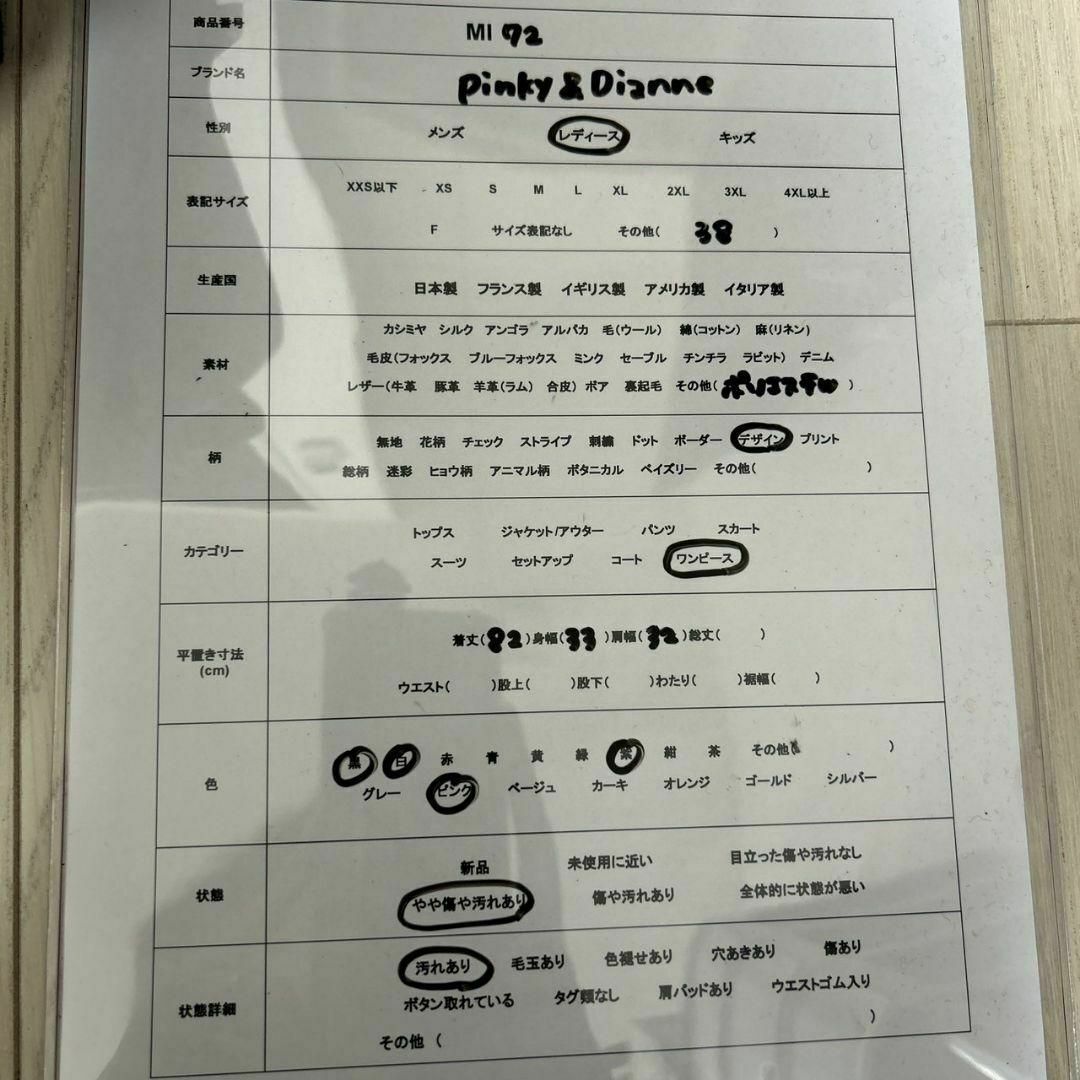 商品番号 MI 72
ブランド名 Pinky & Dianne
性別 メンズ レディース キッズ
表記サイズ XXS以下 XS S M L XL 2XL 3XL 4XL以上
F サイズ表記なし その他( 38 )
生産国 日本製 フランス製 イギリス製 アメリカ製 イタリア製
素材 カシミヤ シルク アンゴラ アルパカ 毛(ウール) 綿(コットン) 麻(リネン)
毛皮(フォックス ブルーフォックス ミンク セーブル チンチラ ラビット) デニム
レザー(牛革 豚革 羊革(ラム) 合皮) ボア 裏起毛 その他( ポリエステル )
柄 無地 花柄 チェック ストライプ 刺繍 ドット ボーダー デザイン プリント
総柄 迷彩 ヒョウ柄 アニマル柄 ボタニカル ペイズリー その他( )
カテゴリー トップス ジャケット/アウター パンツ スカート
スーツ セットアップ コート ワンピース
平置き寸法 (cm) 着丈(82)身幅(33)肩幅(32)総丈( )
ウエスト( )股上( )股下( )わたり( )裾幅( )
色 黒 白 赤 青 黄 緑 紫 紺 茶 その他( )
グレー ピンク ベージュ カーキ オレンジ ゴールド シルバー
状態 新品 未使用に近い 目立った傷や汚れなし
やや傷や汚れあり 傷や汚れあり 全体的に状態が悪い
状態詳細 汚れあり 毛玉あり 色褪せあり 穴あきあり 傷あり
ボタン取れている タグ類なし 肩パッドあり ウエストゴム入り
その他 ( )